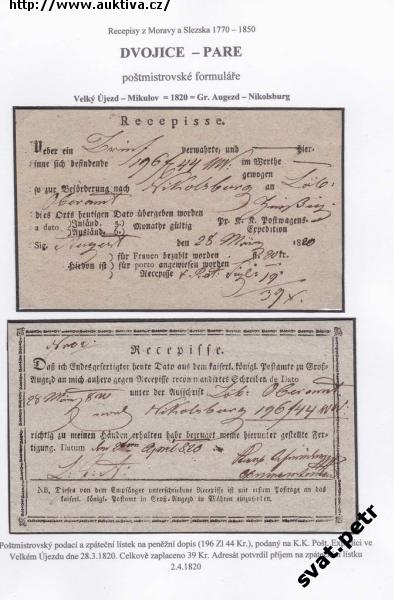 http://www.auktiva.cz/
Recepisy z Moravy a Slezska 1770 – 1850
DVOJICE – PARE
poštmistrovské formuláře
Velký Újezd – Mikulov = 1820 = Gr. Augezd – Nikolsburg
Recepisse.
Ueber ein Brief verwahrte, und hier-
inne sich befindende 196 f 44 xr. im Werthe
gewogen
so zur Beförderung nach Nikolsburg an Löb.
Oberamt
dies Orts heutigen Dato übergeben worden
a dato Inland. 3. Monathe gültig Pr. K. K. Postwagens-
Ausland. 6. Expedition
Sig. Augezd den 28 März 1820
Hievon ist für Franco bezahlt worden 20 kr.
für porto angewiesen worden
Recepisse 19
39 x.
Recepisse.
Daß ich Endesgefertigter heute Dato aus dem kaiserl. königl. Postamte zu Groß-
Augezd an mich anhero gegen Recepisse recommandirtes Schreiben de Dato
28 März 820 unter der Aufschrift Löb. Oberamt
Nikolsburg 196 f 44 xr.
richtig zu meinen Händen erhalten habe bezeuget meine hierunter gestellte Fer-
tigung. Datum den April 820
NB. Dieses von dem Empfänger unterschriebene Recepisse ist mit erstem Posttage an das
kaiserl. königl. Postamte in Groß-Augezd in Mähren einzusenden.
Poštmistrovský podací a zpáteční lístek na peněžní dopis (196 Zl 44 Kr.), podaný na K.K. Pošt. Expedici ve
Velkém Újezdu dne 28.3.1820. Celkově zaplaceno 39 Kr. Adresát potvrdil příjem na zpátečním lístku
2.4.1820
svat.petr